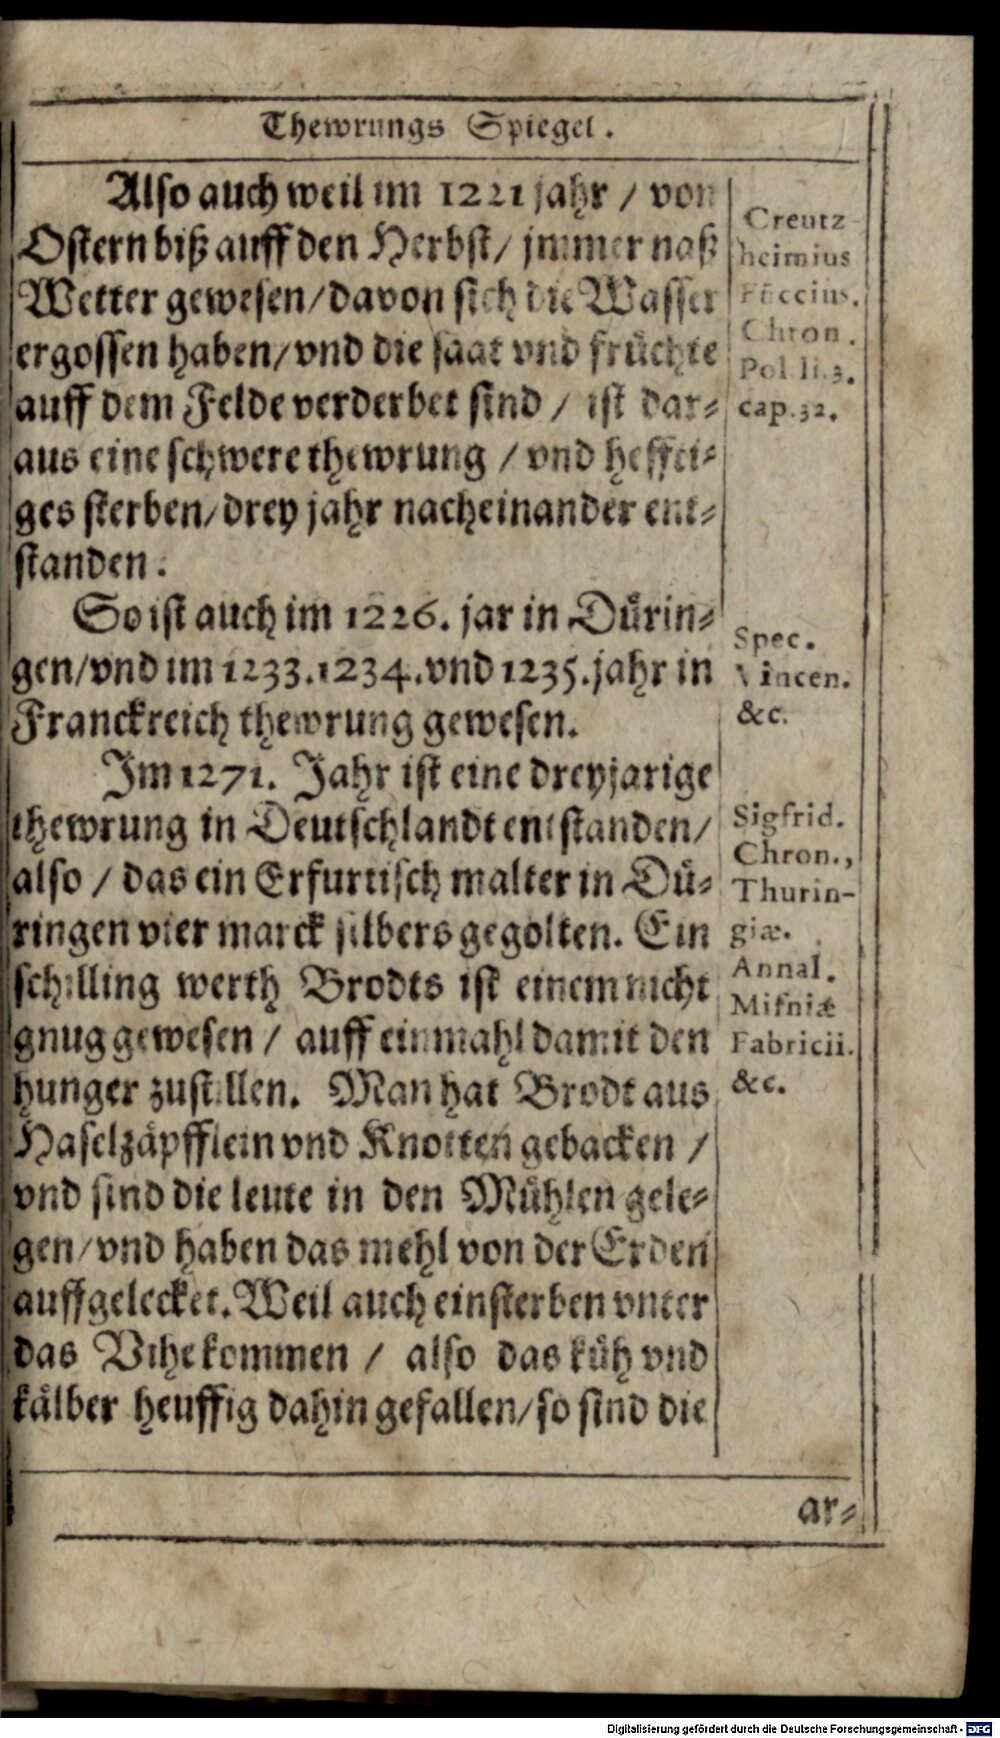 Thewrungs Spiegel.
Also auch weil im 1221 jahr / von
Ostern biß auff den Herbst / jmmer naß
Wetter gewesen / davon sich die Wasser
ergossen haben / vnd die saat vnd früchte
auff dem Felde verderbet sind / ist dar-
aus eine schwere thewrung / vnd heffti-
ges sterben / drey jahr nacheinander ent-
standen.
So ist auch im 1226. jar in Düring-
gen / vnd im 1233. 1234. vnd 1235. jahr in
Franckreich thewrung gewesen.
Im 1271. Jahr ist eine dreyjarige
thewrung in Deutschlandt entstanden /
also / das ein Erfurtisch malter in Dü-
ringen vier marck silbers gegolten. Ein
schilling werth Brodts ist einem nicht
gnug gewesen / auff einmahl damit den
hunger zustillen. Man hat Brodt aus
Haselzäpfflein vnd Knotten gebacken /
vnd sind die leute in den Mühlen gele-
gen / vnd haben das mehl von der Erden
auffgelecket. Weil auch ein sterben vnter
das Vihe kommen / also das küh vnd
kälber heuffig dahin gefallen / so sind die
ar-
Creutz-
heimius
Chron.
Pol. li. 3.
cap. 32.
Spec.
Vincen.
&c.
Sigfrid.
Chron.,
Thurin-
giæ.
Annal.
Misniæ
Fabricii.
&c.
Digitalisierung gefördert durch die Deutsche Forschungsgemeinschaft - DFG